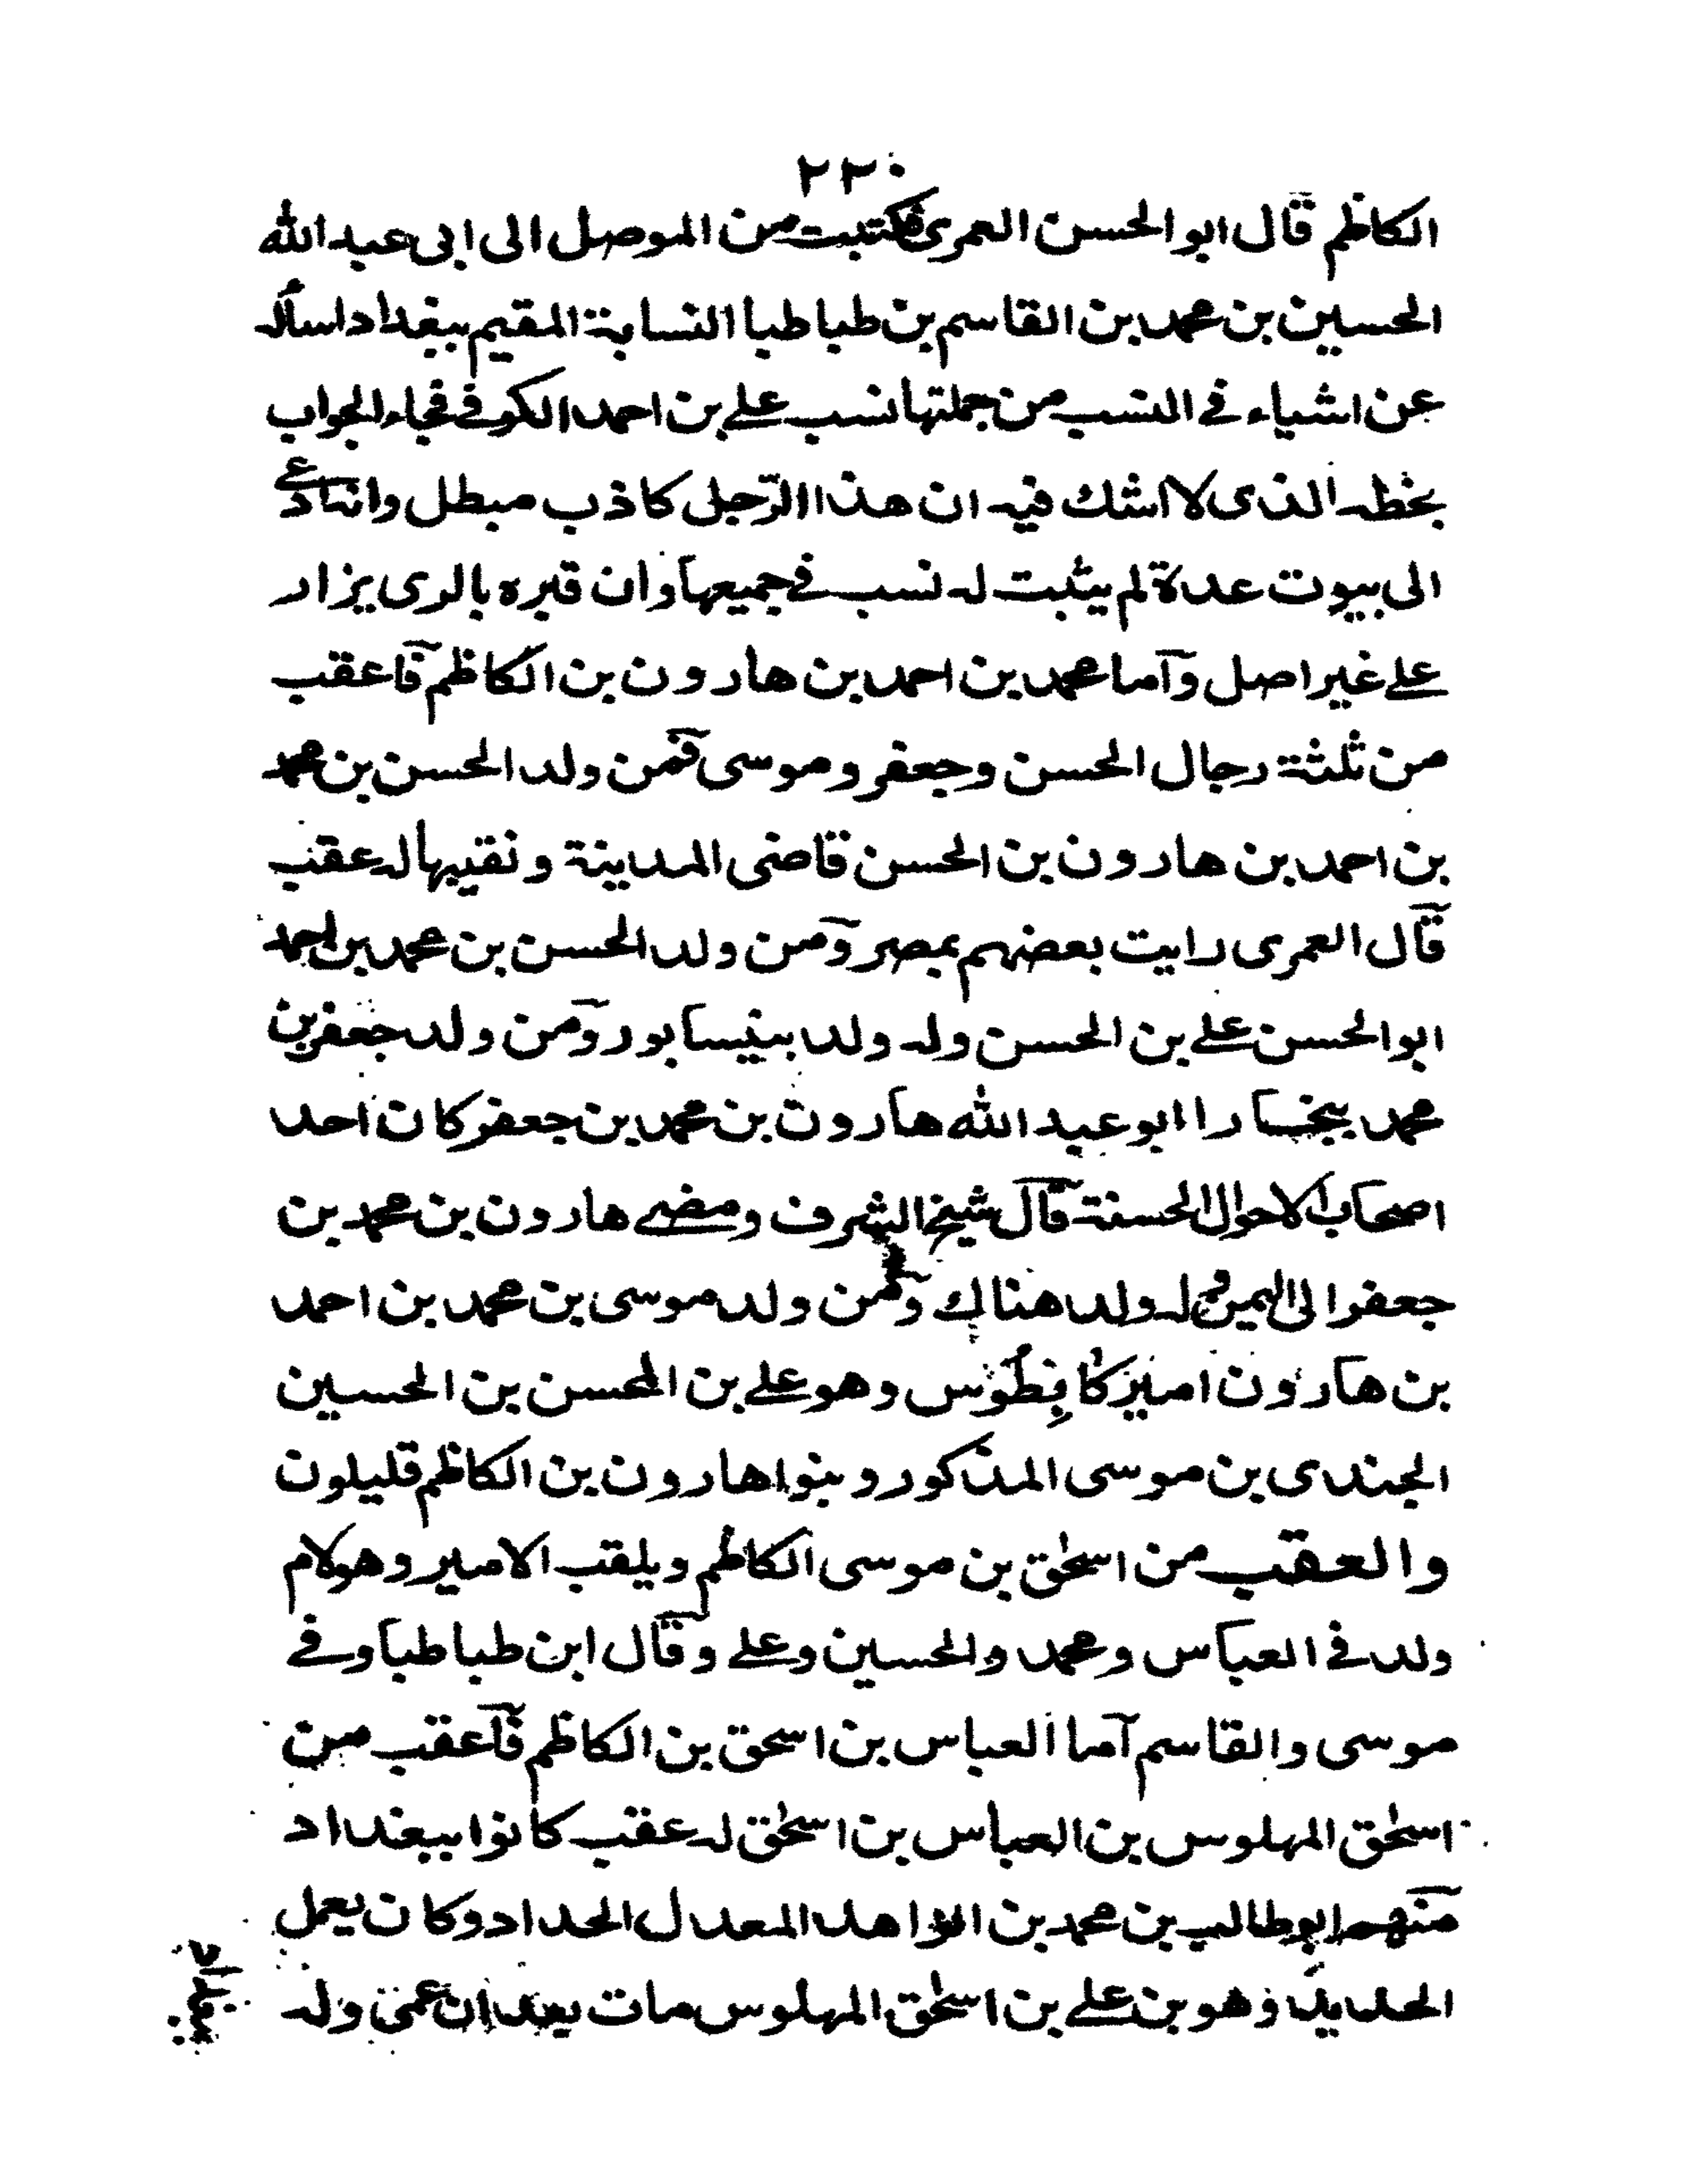 ٢٢٠
الكاظم قال ابو الحسن العمرى فكتبت من الموصل الى ابى عبد الله
الحسين بن محمد بن القاسم بن طباطبا النسابة المقيم ببغداد اسأله
عن اشياء فى النسب من جملتها نسب على بن احمد الكوفى فجاء الجواب
بخطه الذى لا اشك فيه ان هذا الرجل كاذب مبطل وانه ادعى
الى بيوت عدة لم يثبت له نسب فى جميعها وان قبره بالرى يزار
على غير اصل واما محمد بن احمد بن هارون بن الكاظم فاعقب
من ثلثة رجال الحسن وجعفر وموسى فمن ولد الحسن بن محمد
بن احمد بن هارون بن الحسن قاضى المدينة ونقيبها له عقب
قال العمرى رايت بعضهم بمصر ومن ولد الحسن بن محمد بن احمد
ابو الحسن على بن الحسن وله ولد بنيسابور ومن ولد جعفر بن
محمد ببخارا ابو عبد الله هارون بن محمد بن جعفر كان احد
اصحاب الاحوال الحسنة قال شيخ الشرف ومضى هارون بن محمد بن
جعفر الى اليمن وله ولد هناك ومن ولد موسى بن محمد بن احمد
بن هارون اميركا بطوس وهو على بن المحسن بن الحسين
الجندى بن موسى المذكور وبنوا هارون بن الكاظم قليلون
والعقب من اسحٰق بن موسى الكاظم ويلقب الامير وهو لام
ولد فى العباس ومحمد والحسين وعلى وقال ابن طباطبا وفى
موسى والقاسم اما العباس بن اسحق بن الكاظم فاعقب من
اسحٰق المهلوس بن العباس بن اسحٰق له عقب كانوا ببغداد
منهم ابو طالب بن محمد بن الزاهد المعدل الحداد وكان يعمل
الحديد وهو بن على بن اسحٰق المهلوس مات بعد ان عمى وله